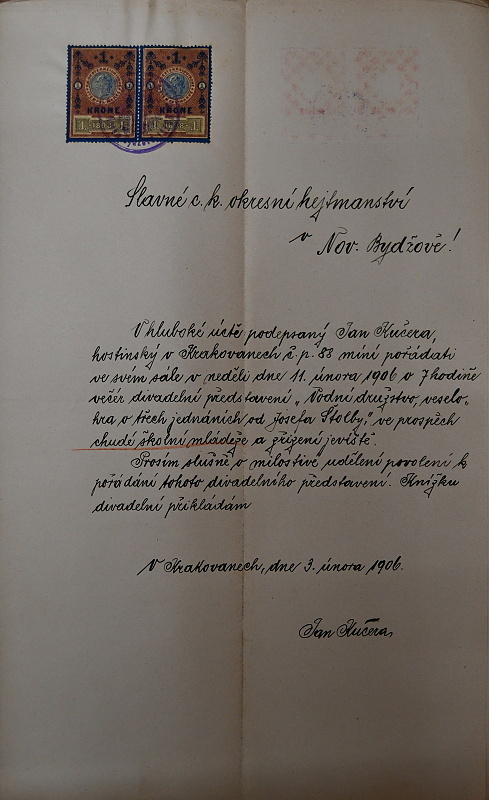 1 1
KRONE KRONE
1 1898 1 1 1898 1
Slavné c. k. okresní hejtmanství
v Nov. Bydžově!
V hluboké úctě podepsaný Jan Kučera,
hostinský v Krakovanech č. p. 83 míní pořádati
ve svém sále v neděli dne 11. února 1906 o 7 hodině
večer divadelní představení „Vodní družstvo, veselo-
hra o třech jednáních od Josefa Štolby," ve prospěch
chudé školní mládeže a zřízení jeviště.
Prosím slušně o milostivé udělení povolení k
pořádání tohoto divadelního představení. Knížku
divadelní přikládám
V Krakovanech, dne 3. února 1906.
Jan Kučera,